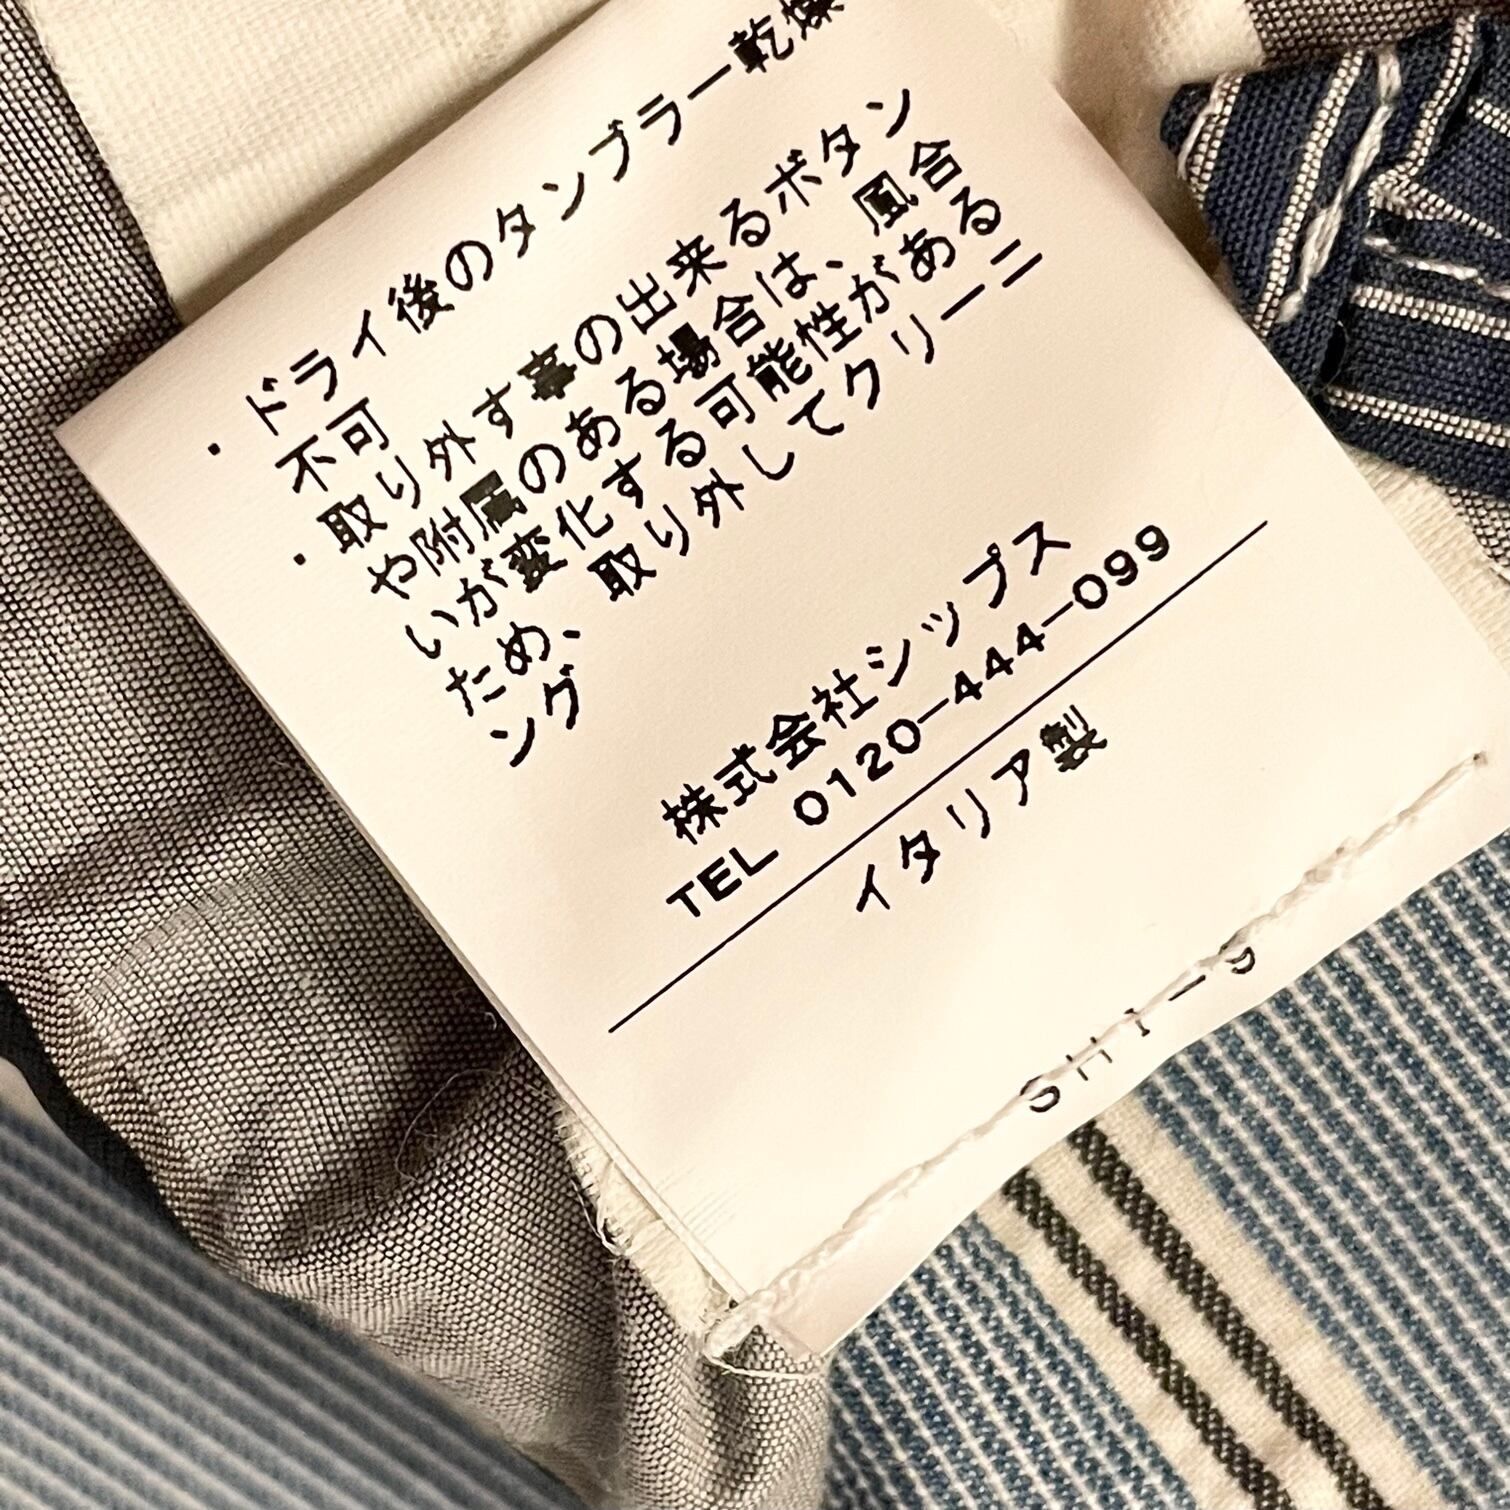 ・ドライ後のタンブラー乾燥
不可
・取り外す事の出来るボタン
や附属のある場合は、風合
いが変化する可能性がある
ため、取り外してクリーニ
ング
株式会社シップス
TEL 0120-444-099
イタリア製